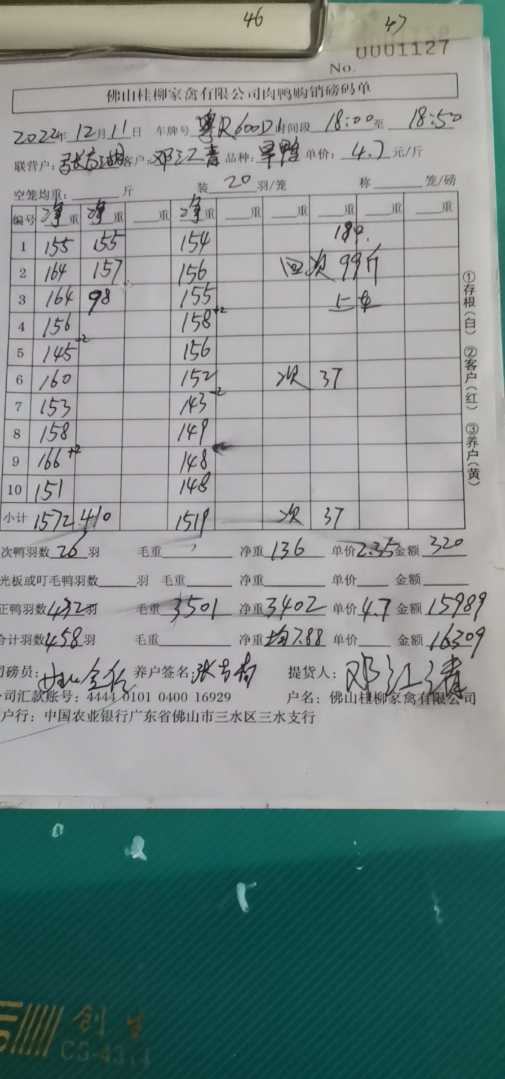 46
47
0001127
No.
佛山桂柳家禽有限公司肉鸭购销磅码单
2022年 12月 11日 车牌号 粤R600D4 时间段 18:00至 18:50
联营户: 客户: 邓江青 品种: 旱鸭 单价: 4.7 元/斤
空笼均重: 斤 装 20 羽/笼 称 笼/磅
编号 净重 净重 重 净重 重 重 重 重 重
1 155 155 154 189.
2 164 157 156 回次 99斤
3 164 98 155 上车
4 156 158+2
5 145-2 156
6 160 152 次 37
7 153 143-2
8 158 149
9 166+2 148
10 151 148
小计 1572 410 1519 次 37
次鸭羽数 26 羽 毛重 净重 136 单价 2.35 金额 320
光板或叮毛鸭羽数 羽 毛重 净重 单价 金额
正鸭羽数 432 羽 毛重 3501 净重 3402 单价 4.7 金额 15989
合计羽数 458 羽 毛重 净重 均7.88 单价 金额 16309
司磅员: 养户签名: 提货人: 邓江清
司汇款账号: 4444 0101 0400 16929 户名: 佛山桂柳家禽有限公司
户行: 中国农业银行广东省佛山市三水区三水支行
①存根(白) ②客户(红) ③养户(黄)
创